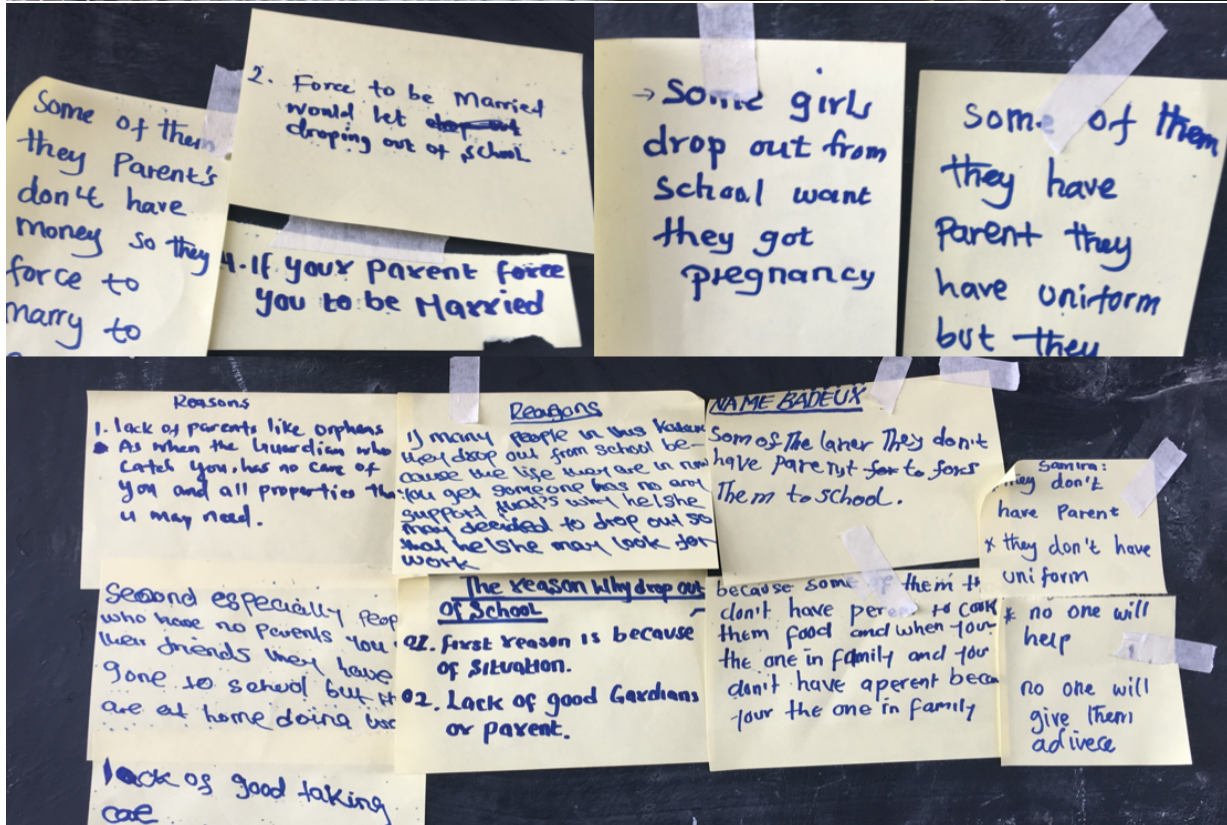 Some of them
they Parent's
don't have
money so they
force to
marry to
2. Force to be Married
would let drop out
droping out of school
4. If your parent force
you to be Married
→ Some girls
drop out from
school want
they got
pregnancy
Some of them
they have
Parent they
have uniform
but they
Reasons
1. lack of parents like orphens
As when the Guardian who
catch you, has no care of
you and all properties tha
u may need.
Second especially peop
who have no parents you
their friends they have
gone to school but th
are at home doing
lack of good taking
cae
Reasons
1) many people in this
they drop out from school be-
cause the life they are in now
you get someone has no any
support that's why he/she
may decided to drop out so
that he/she may look for
work
The reason Why drop out
of School
01. First reason is because
of Situation.
02. Lack of good Gardians
or parent.
NAME BADEUX
Som of The laner They don't
have Parent for to fors
Them to school.
because some of them th
don't have perent to cook
them food and when your
the one in family and you
don't have aperent beca
your the one in family
Samira:
they don't
have Parent
* they don't have
uniform
* no one will
help
no one will
give them
adivece